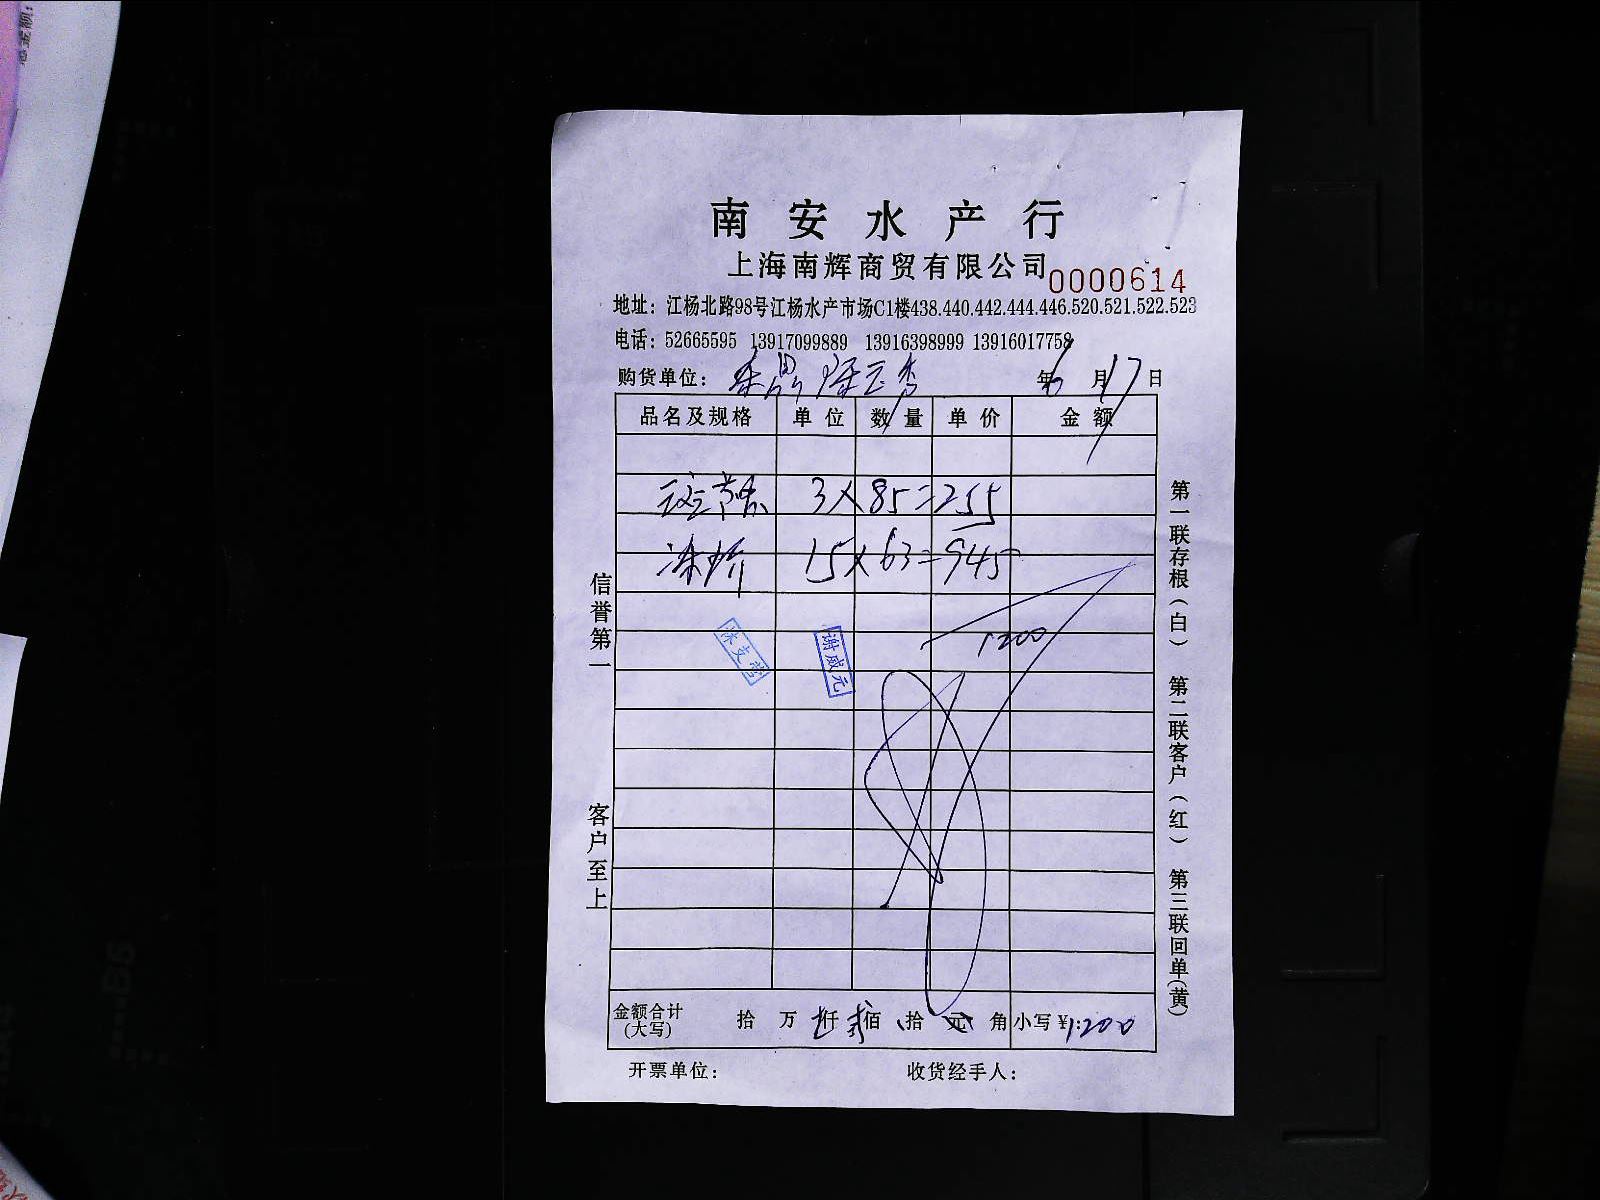 南安水产行
上海南辉商贸有限公司 0000614
地址：江杨北路98号江杨水产市场C1楼438.440.442.444.446.520.521.522.523
电话：52665595 13917099889 13916398999 13916017758
购货单位： 年6月17日
品名及规格 单位 数量 单价 金额
3×85=255
15×63=945
1200
谢咸元
金额合计(大写) 拾 万 仟 贰佰 拾 元 角 小写¥:1200
开票单位： 收货经手人：
信誉第一 客户至上
第一联存根（白） 第二联客户（红） 第三联回单(黄)
总金额:
B5